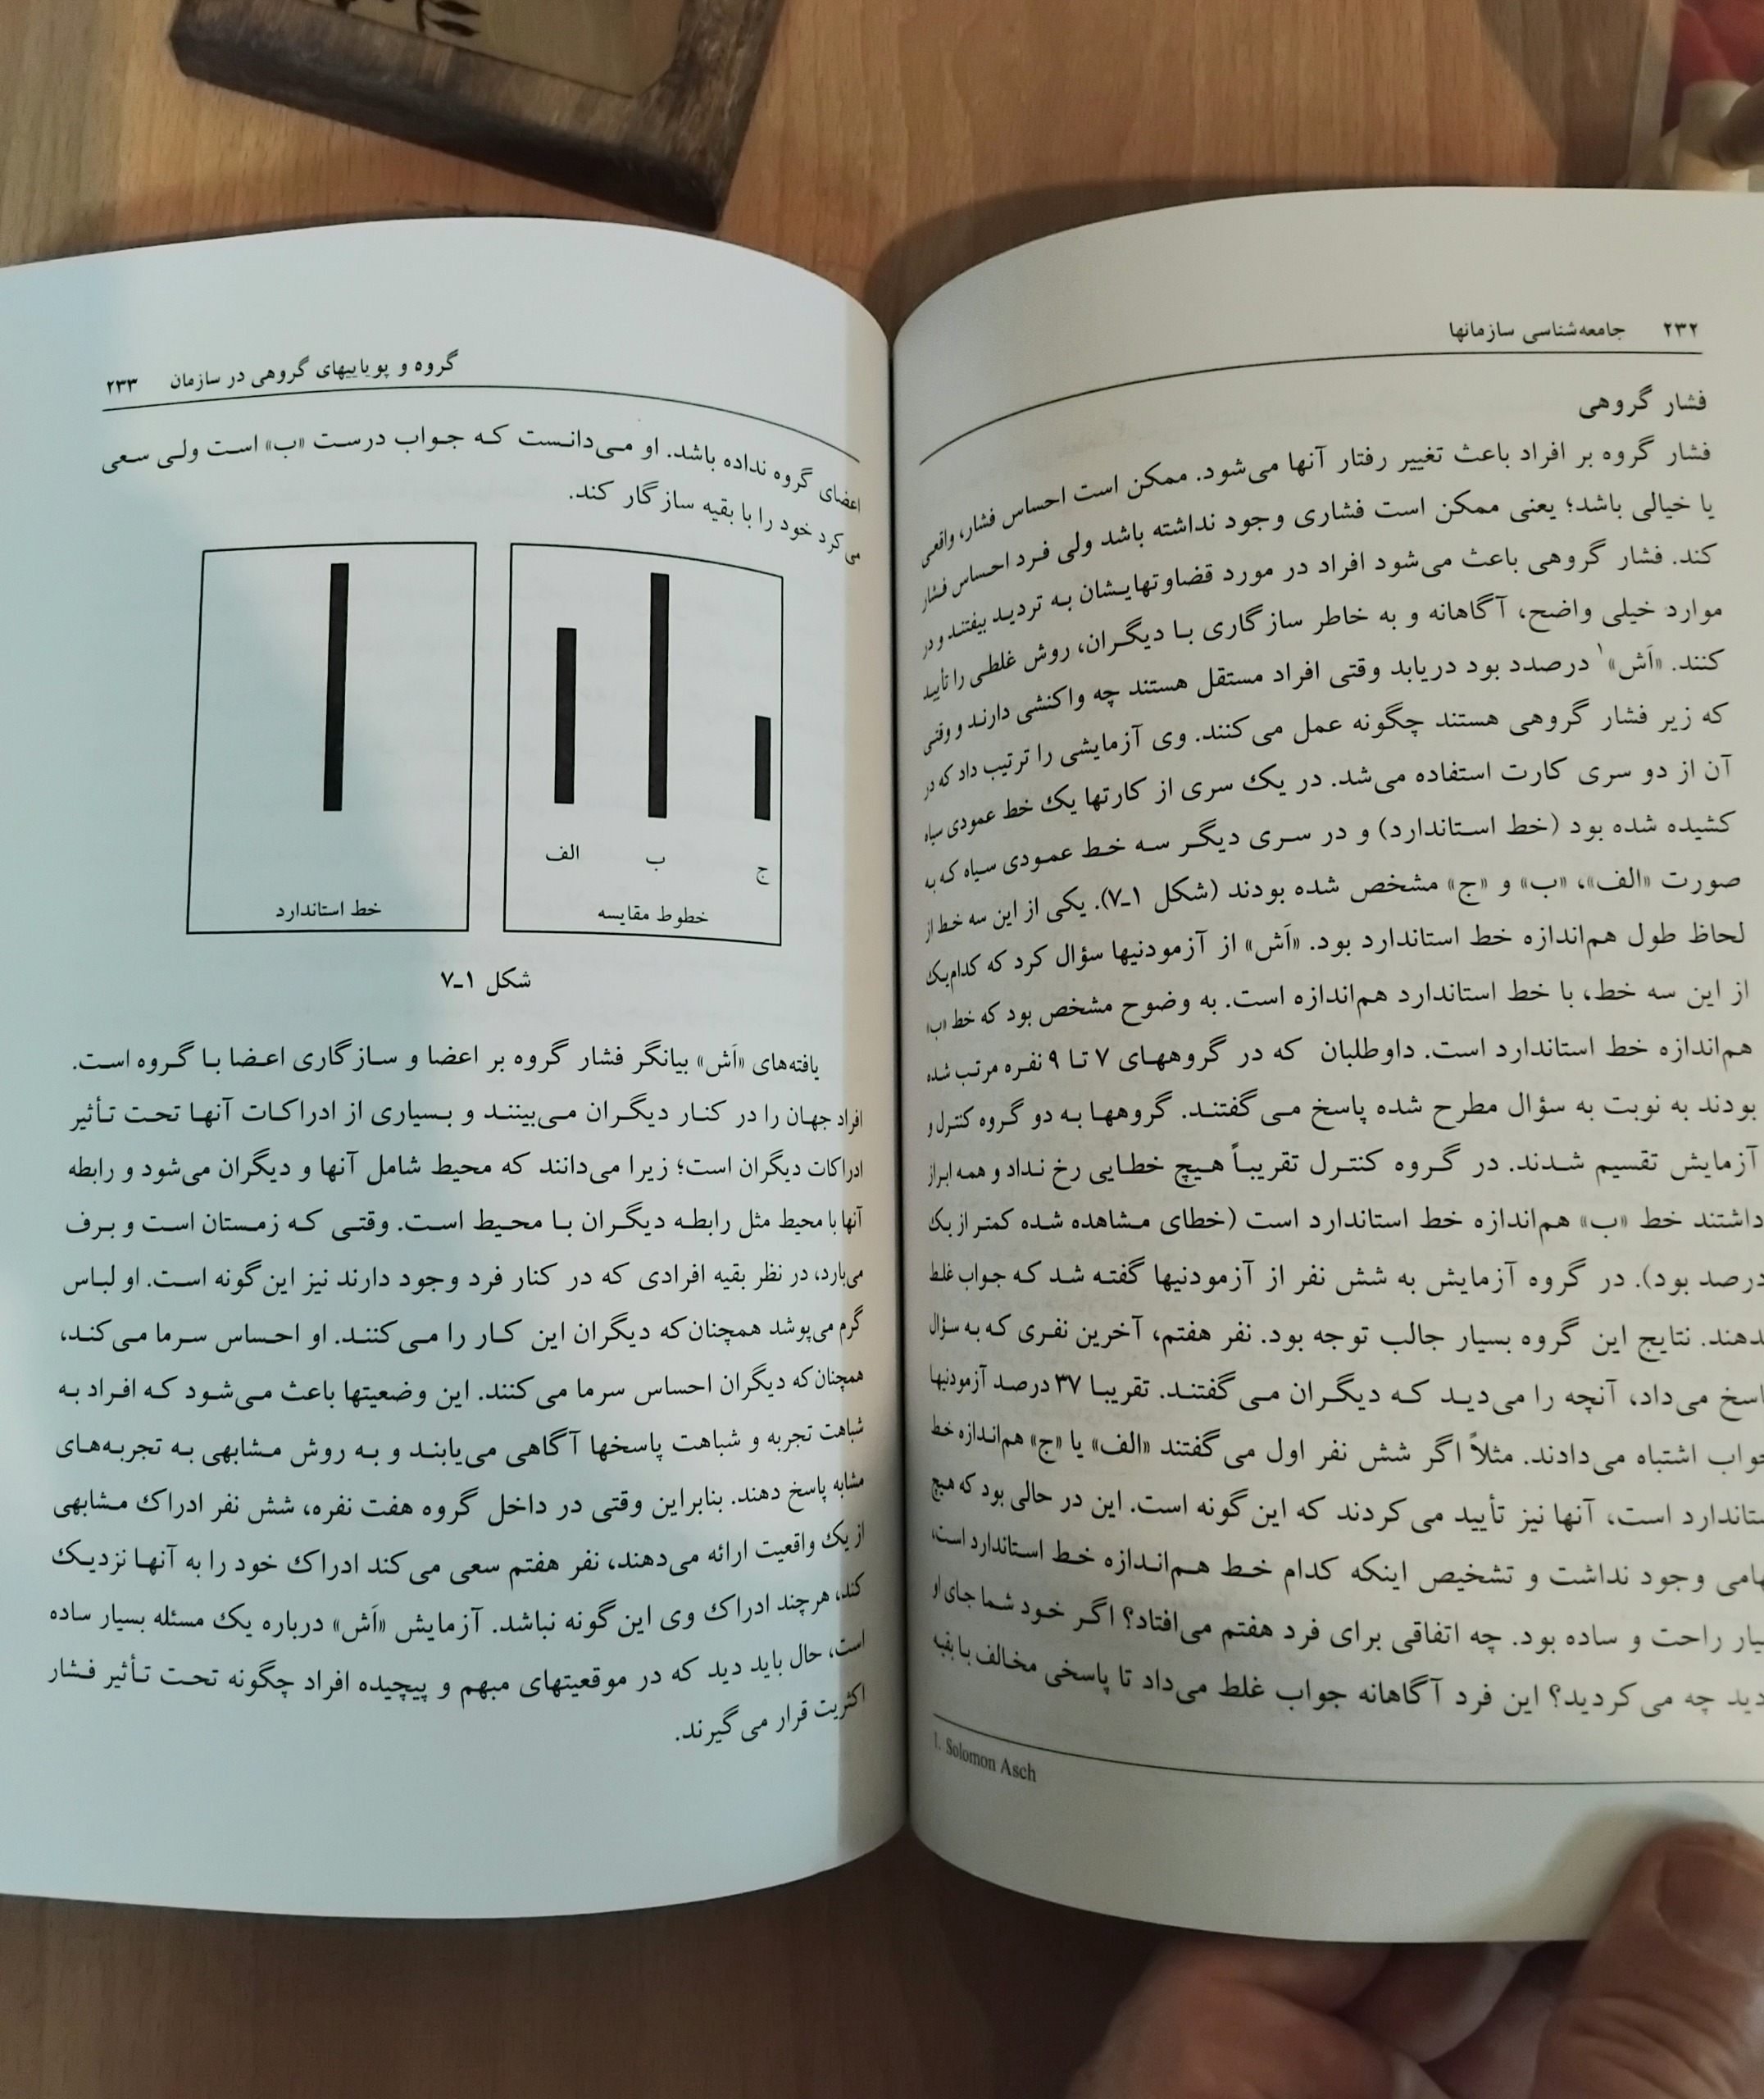 ۲۳۲ جامعه‌شناسی سازمانها
فشار گروهی
فشار گروه بر افراد باعث تغییر رفتار آنها می‌شود. ممکن است احساس فشار، واقعی
یا خیالی باشد؛ یعنی ممکن است فشاری وجود نداشته باشد ولی فرد احساس فشار
کند. فشار گروهی باعث می‌شود افراد در مورد قضاوتهایشان به تردید بیفتند و در
موارد خیلی واضح، آگاهانه و به خاطر سازگاری با دیگران، روش غلطی را تأیید
کنند. «اَش»۱ درصدد بود دریابد وقتی افراد مستقل هستند چه واکنشی دارند و وقتی
که زیر فشار گروهی هستند چگونه عمل می‌کنند. وی آزمایشی را ترتیب داد که در
آن از دو سری کارت استفاده می‌شد. در یک سری از کارتها یک خط عمودی سیاه
کشیده شده بود (خط استاندارد) و در سری دیگر سه خط عمودی سیاه که به
صورت «الف»، «ب» و «ج» مشخص شده بودند (شکل ۱ـ۷). یکی از این سه خط از
لحاظ طول هم‌اندازه خط استاندارد بود. «اَش» از آزمودنیها سؤال کرد که کدام‌یک
از این سه خط، با خط استاندارد هم‌اندازه است. به وضوح مشخص بود که خط «ب»
هم‌اندازه خط استاندارد است. داوطلبان که در گروههای ۷ تا ۹ نفره مرتب شده
بودند به نوبت به سؤال مطرح شده پاسخ می‌گفتند. گروهها به دو گروه کنترل و
آزمایش تقسیم شدند. در گروه کنترل تقریباً هیچ خطایی رخ نداد و همه ابراز
داشتند خط «ب» هم‌اندازه خط استاندارد است (خطای مشاهده شده کمتر از یک
درصد بود). در گروه آزمایش به شش نفر از آزمودنیها گفته شد که جواب غلط
بدهند. نتایج این گروه بسیار جالب توجه بود. نفر هفتم، آخرین نفری که به سؤال
پاسخ می‌داد، آنچه را می‌دید که دیگران می‌گفتند. تقریبا ۳۷ درصد آزمودنیها
جواب اشتباه می‌دادند. مثلاً اگر شش نفر اول می‌گفتند «الف» یا «ج» هم‌اندازه خط
ستاندارد است، آنها نیز تأیید می‌کردند که این‌گونه است. این در حالی بود که هیچ
هامی وجود نداشت و تشخیص اینکه کدام خط هم‌اندازه خط استاندارد است،
یار راحت و ساده بود. چه اتفاقی برای فرد هفتم می‌افتاد؟ اگر خود شما جای او
دید چه می‌کردید؟ این فرد آگاهانه جواب غلط می‌داد تا پاسخی مخالف با بقیه
1. Solomon Asch
گروه و پویاییهای گروهی در سازمان ۲۳۳
اعضای گروه نداده باشد. او می‌دانست که جواب درست «ب» است ولی سعی
می‌کرد خود را با بقیه سازگار کند.
الف
ب
ج
خطوط مقایسه
خط استاندارد
شکل ۱ـ۷
یافته‌های «اَش» بیانگر فشار گروه بر اعضا و سازگاری اعضا با گروه است.
افراد جهان را در کنار دیگران می‌بینند و بسیاری از ادراکات آنها تحت تأثیر
ادراکات دیگران است؛ زیرا می‌دانند که محیط شامل آنها و دیگران می‌شود و رابطه
آنها با محیط مثل رابطه دیگران با محیط است. وقتی که زمستان است و برف
می‌بارد، در نظر بقیه افرادی که در کنار فرد وجود دارند نیز این‌گونه است. او لباس
گرم می‌پوشد همچنان‌که دیگران این کار را می‌کنند. او احساس سرما می‌کند،
همچنان‌که دیگران احساس سرما می‌کنند. این وضعیتها باعث می‌شود که افراد به
شباهت تجربه و شباهت پاسخها آگاهی می‌یابند و به روش مشابهی به تجربه‌های
مشابه پاسخ دهند. بنابراین وقتی در داخل گروه هفت نفره، شش نفر ادراک مشابهی
از یک واقعیت ارائه می‌دهند، نفر هفتم سعی می‌کند ادراک خود را به آنها نزدیک
کند، هرچند ادراک وی این‌گونه نباشد. آزمایش «اَش» درباره یک مسئله بسیار ساده
است، حال باید دید که در موقعیتهای مبهم و پیچیده افراد چگونه تحت تأثیر فشار
اکثریت قرار می‌گیرند.